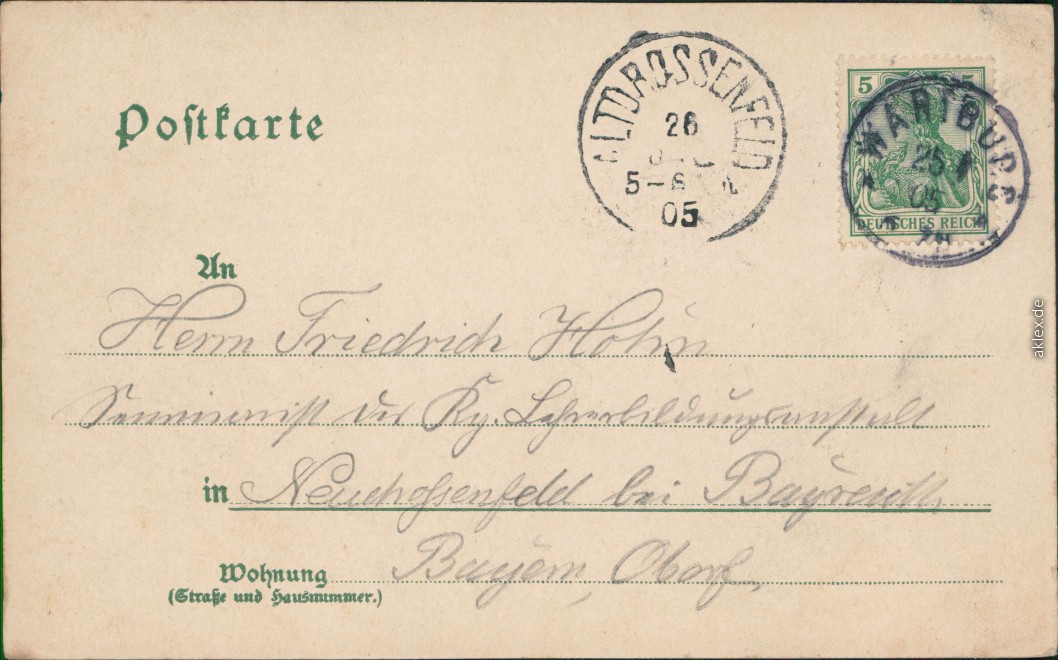 Postkarte
ALTDROSSENFELD
26
5-6
05
5 5
WARTBURG
25
05
DEUTSCHES REICH
An
Herrn Friedrich Höhn
Seminarist der Kg. Lehrerbildungsanstalt
in Neudrossenfeld bei Bayreuth,
Wohnung Bayern, Oberf.
(Straße und Hausnummer.)
aklex.de